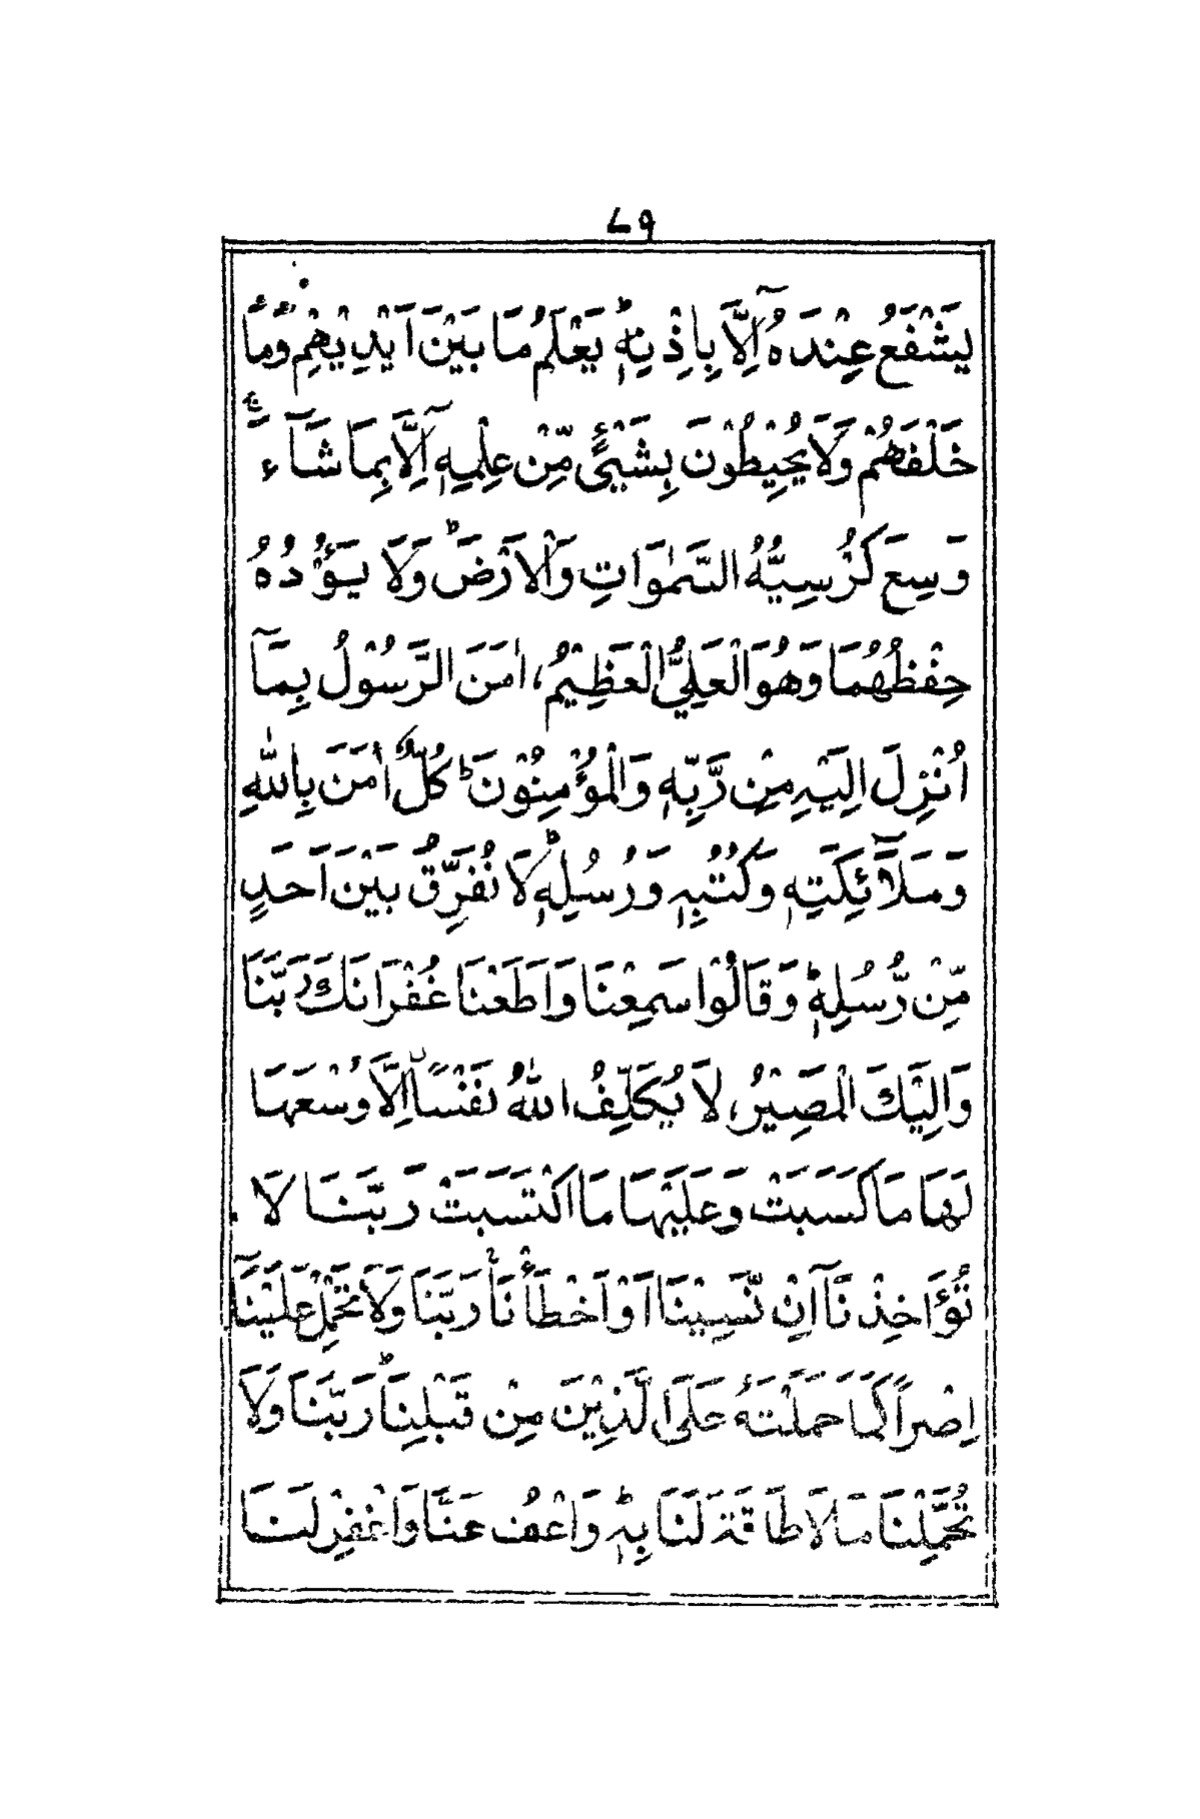 ٧٩
يَشْفَعُ عِنْدَهٗٓ اِلَّا بِاِذْنِهٖؕ يَعْلَمُ مَا بَيْنَ اَيْدِيْهِمْ وَمَا
خَلْفَهُمْ وَلَا يُحِيْطُوْنَ بِشَيْئٍ مِّنْ عِلْمِهٖٓ اِلَّا بِمَا شَآءَۚ
وَسِعَ كُرْسِيُّهُ السَّمٰوَاتِ وَالْاَرْضَؕ وَلَا يَـؤُدُهٗ
حِفْظُهُمَا وَهُوَ الْعَلِيُّ الْعَظِيْمُ، اٰمَنَ الرَّسُوْلُ بِمَآ
اُنْزِلَ اِلَيْهِ مِنْ رَّبِّهٖ وَالْمُؤْمِنُوْنَؕ كُلٌّ اٰمَنَ بِاللّٰهِ
وَمَلَآئِكَتِهٖ وَكُتُبِهٖ وَرُسُلِهٖؕ لَا نُفَرِّقُ بَيْنَ اَحَدٍ
مِّنْ رُّسُلِهٖؕ وَقَالُوْا سَمِعْنَا وَاَطَعْنَا غُفْرَانَكَ رَبَّنَا
وَاِلَيْكَ الْمَصِيْرُ، لَا يُكَلِّفُ اللّٰهُ نَفْسًا اِلَّا وُسْعَهَا
لَهَا مَا كَسَبَتْ وَعَلَيْهَا مَا اكْتَسَبَتْ رَبَّنَا لَا
تُؤَاخِذْنَآ اِنْ نَّسِيْنَا اَوْ اَخْطَأْنَا رَبَّنَا وَلَا تَحْمِلْ عَلَيْنَآ
اِصْرًا كَمَا حَمَلْتَهٗ عَلَى الَّذِيْنَ مِنْ قَبْلِنَاؕ رَبَّنَا وَلَا
تُحَمِّلْنَا مَا لَا طَاقَةَ لَنَا بِهٖؕ وَاعْفُ عَنَّا وَاغْفِرْ لَنَا